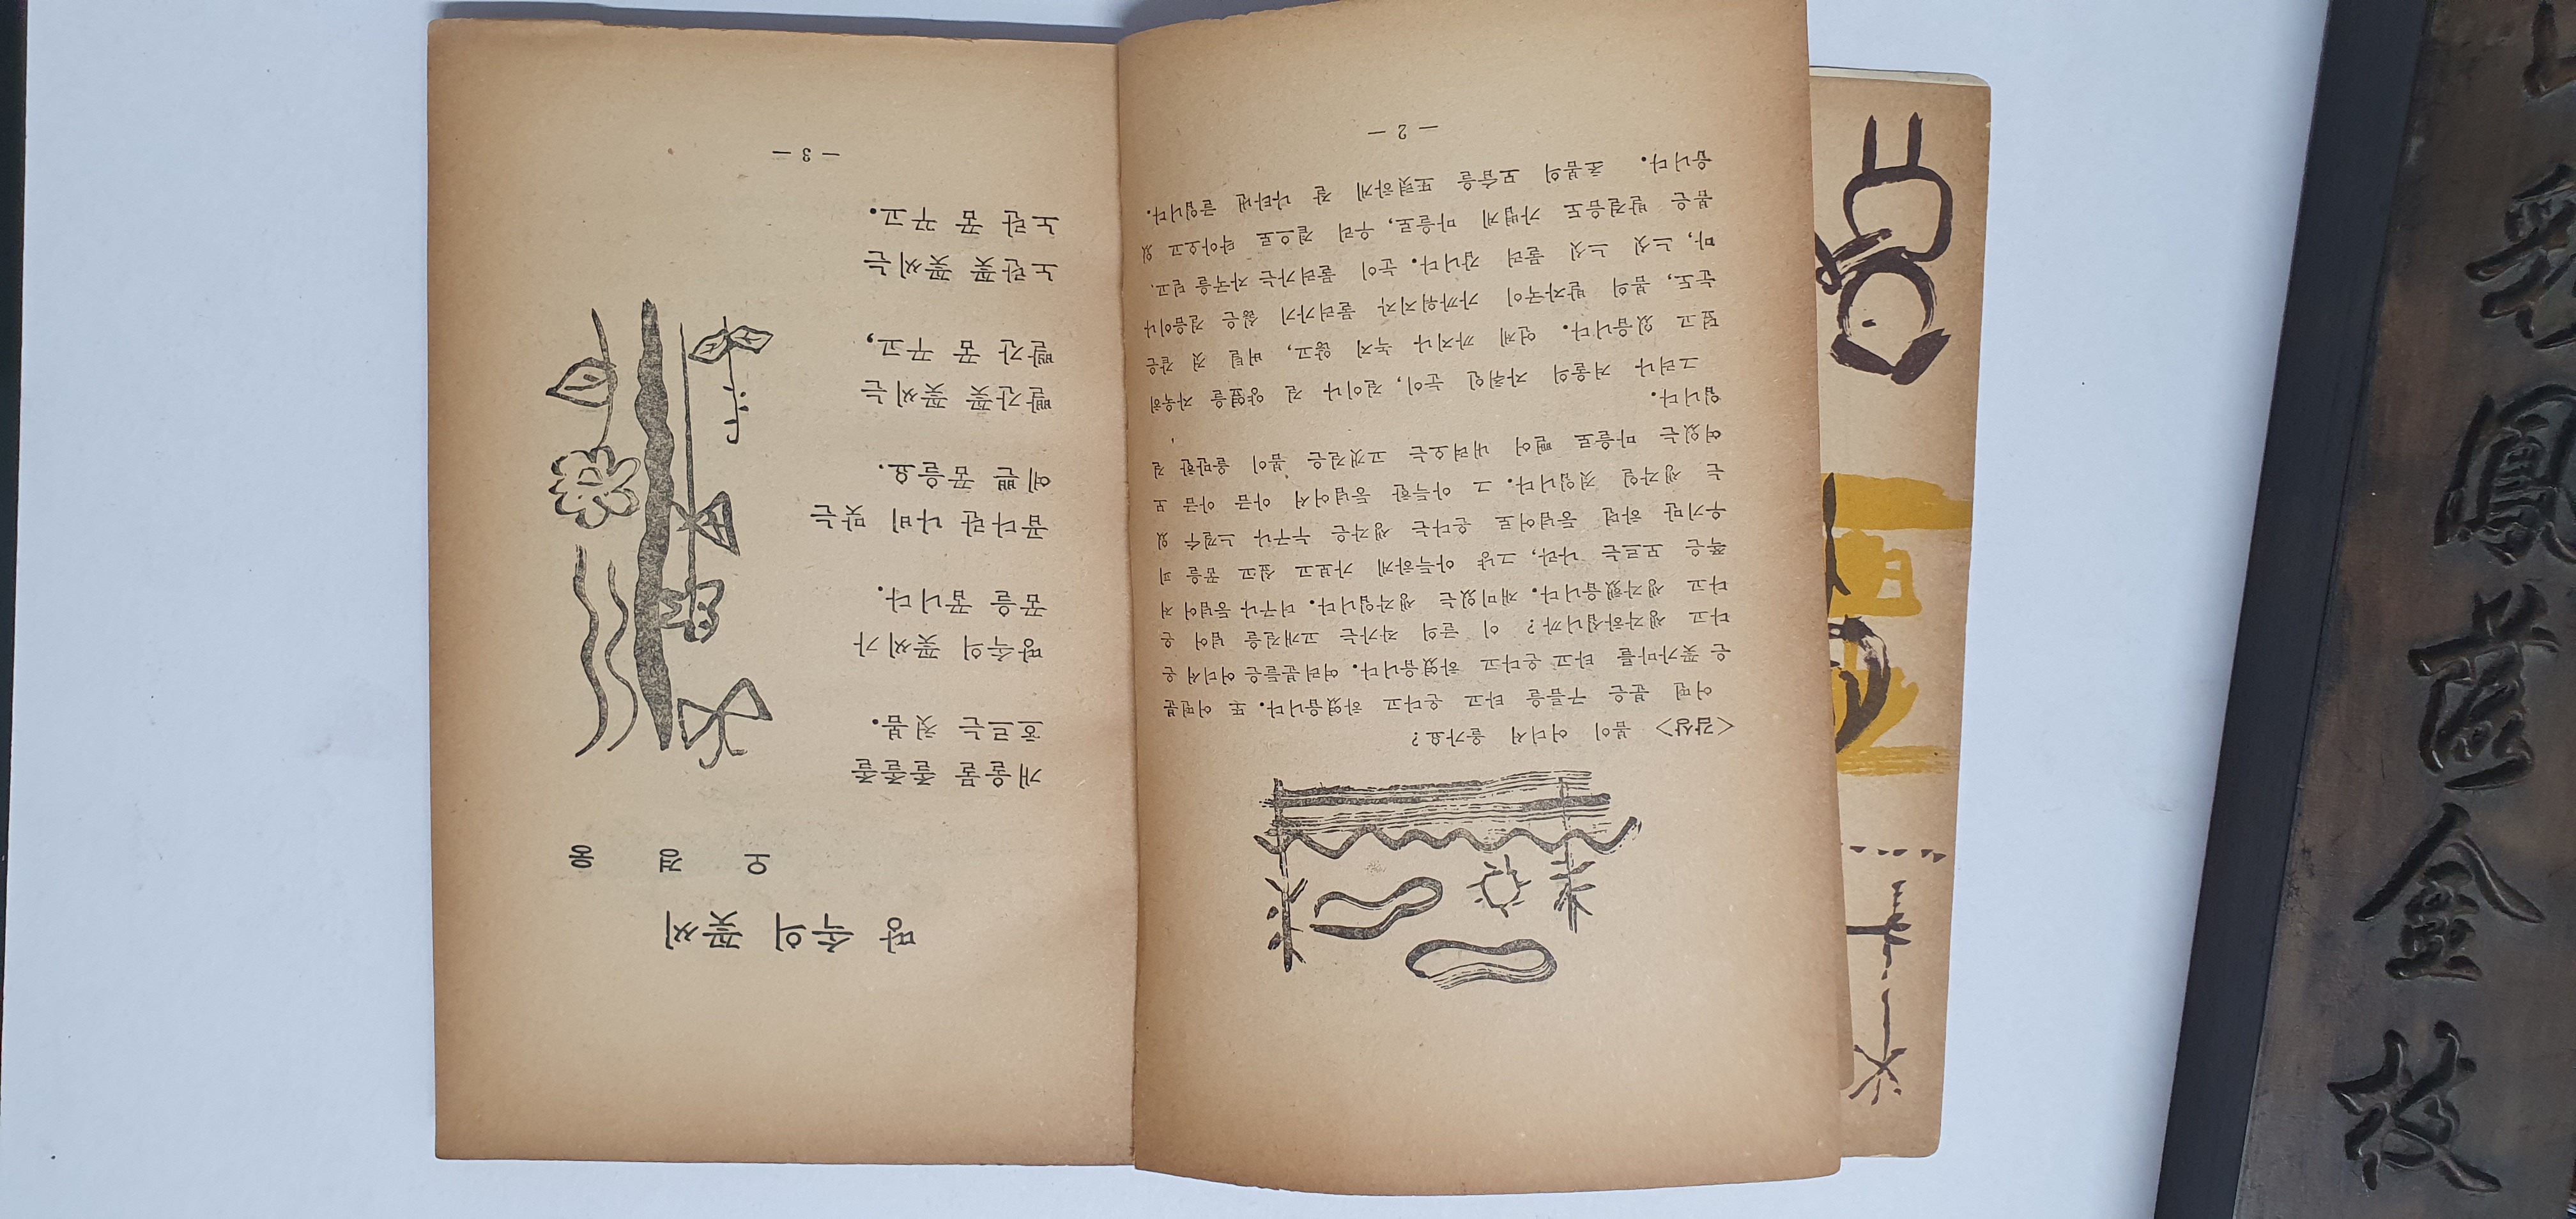 <감상> 봄이 어디서 올가요?
어떤 분은 구름을 타고 온다고 하였읍니다. 또 어떤분
은 꽃가마를 타고 온다고 하였읍니다. 여러분들은 어디서 온
다고 생각하십니까? 이 글의 작가는 고개길을 넘어 온
다고 생각했읍니다. 재미있는 생각입니다. 더구나 등넘어 저
쪽은 모르는 나라, 그냥 아득하게 가보고 싶고 꿈을 피
우기만 하면 등넘어로 온다는 생각은 누구나 느낄수 있
는 생각일 것입니다. 그 아득한 등넘어서 야금 야금 보
여있는 마을로 뻗어 내려오는 고갯길은 봄이 올만한 길
입니다.
그러나 겨울의 자취인 눈이, 길이나 길 양옆을 자욱히
덮고 있읍니다. 언제 까지나 녹지 않고, 버틸 것 같은
눈도, 봄의 발자국이 가까워지자 물러가기 싫은 걸음이나
마, 느싯 느싯 물러 갑니다. 눈이 물러가는 자국을 딛고,
봄은 발걸음도 가볍게 마을로, 우리 곁으로 닥아오고 있
읍니다. 초봄의 모습을 또렷하게 잘 나타낸 글입니다.
— 2 —
땅 속의 꽃씨
오 경 웅
개울물 졸졸졸
흐르는 첫 봄.
땅속의 꽃씨가
꿈을 꿉니다.
곱다란 나비 맞는
예쁜 꿈을요.
빨간꽃 꽃씨는
빨간 꿈 꾸고,
노란 꽃 꽃씨는
노란 꿈 꾸고.
— 3 —
鳳
金
枝